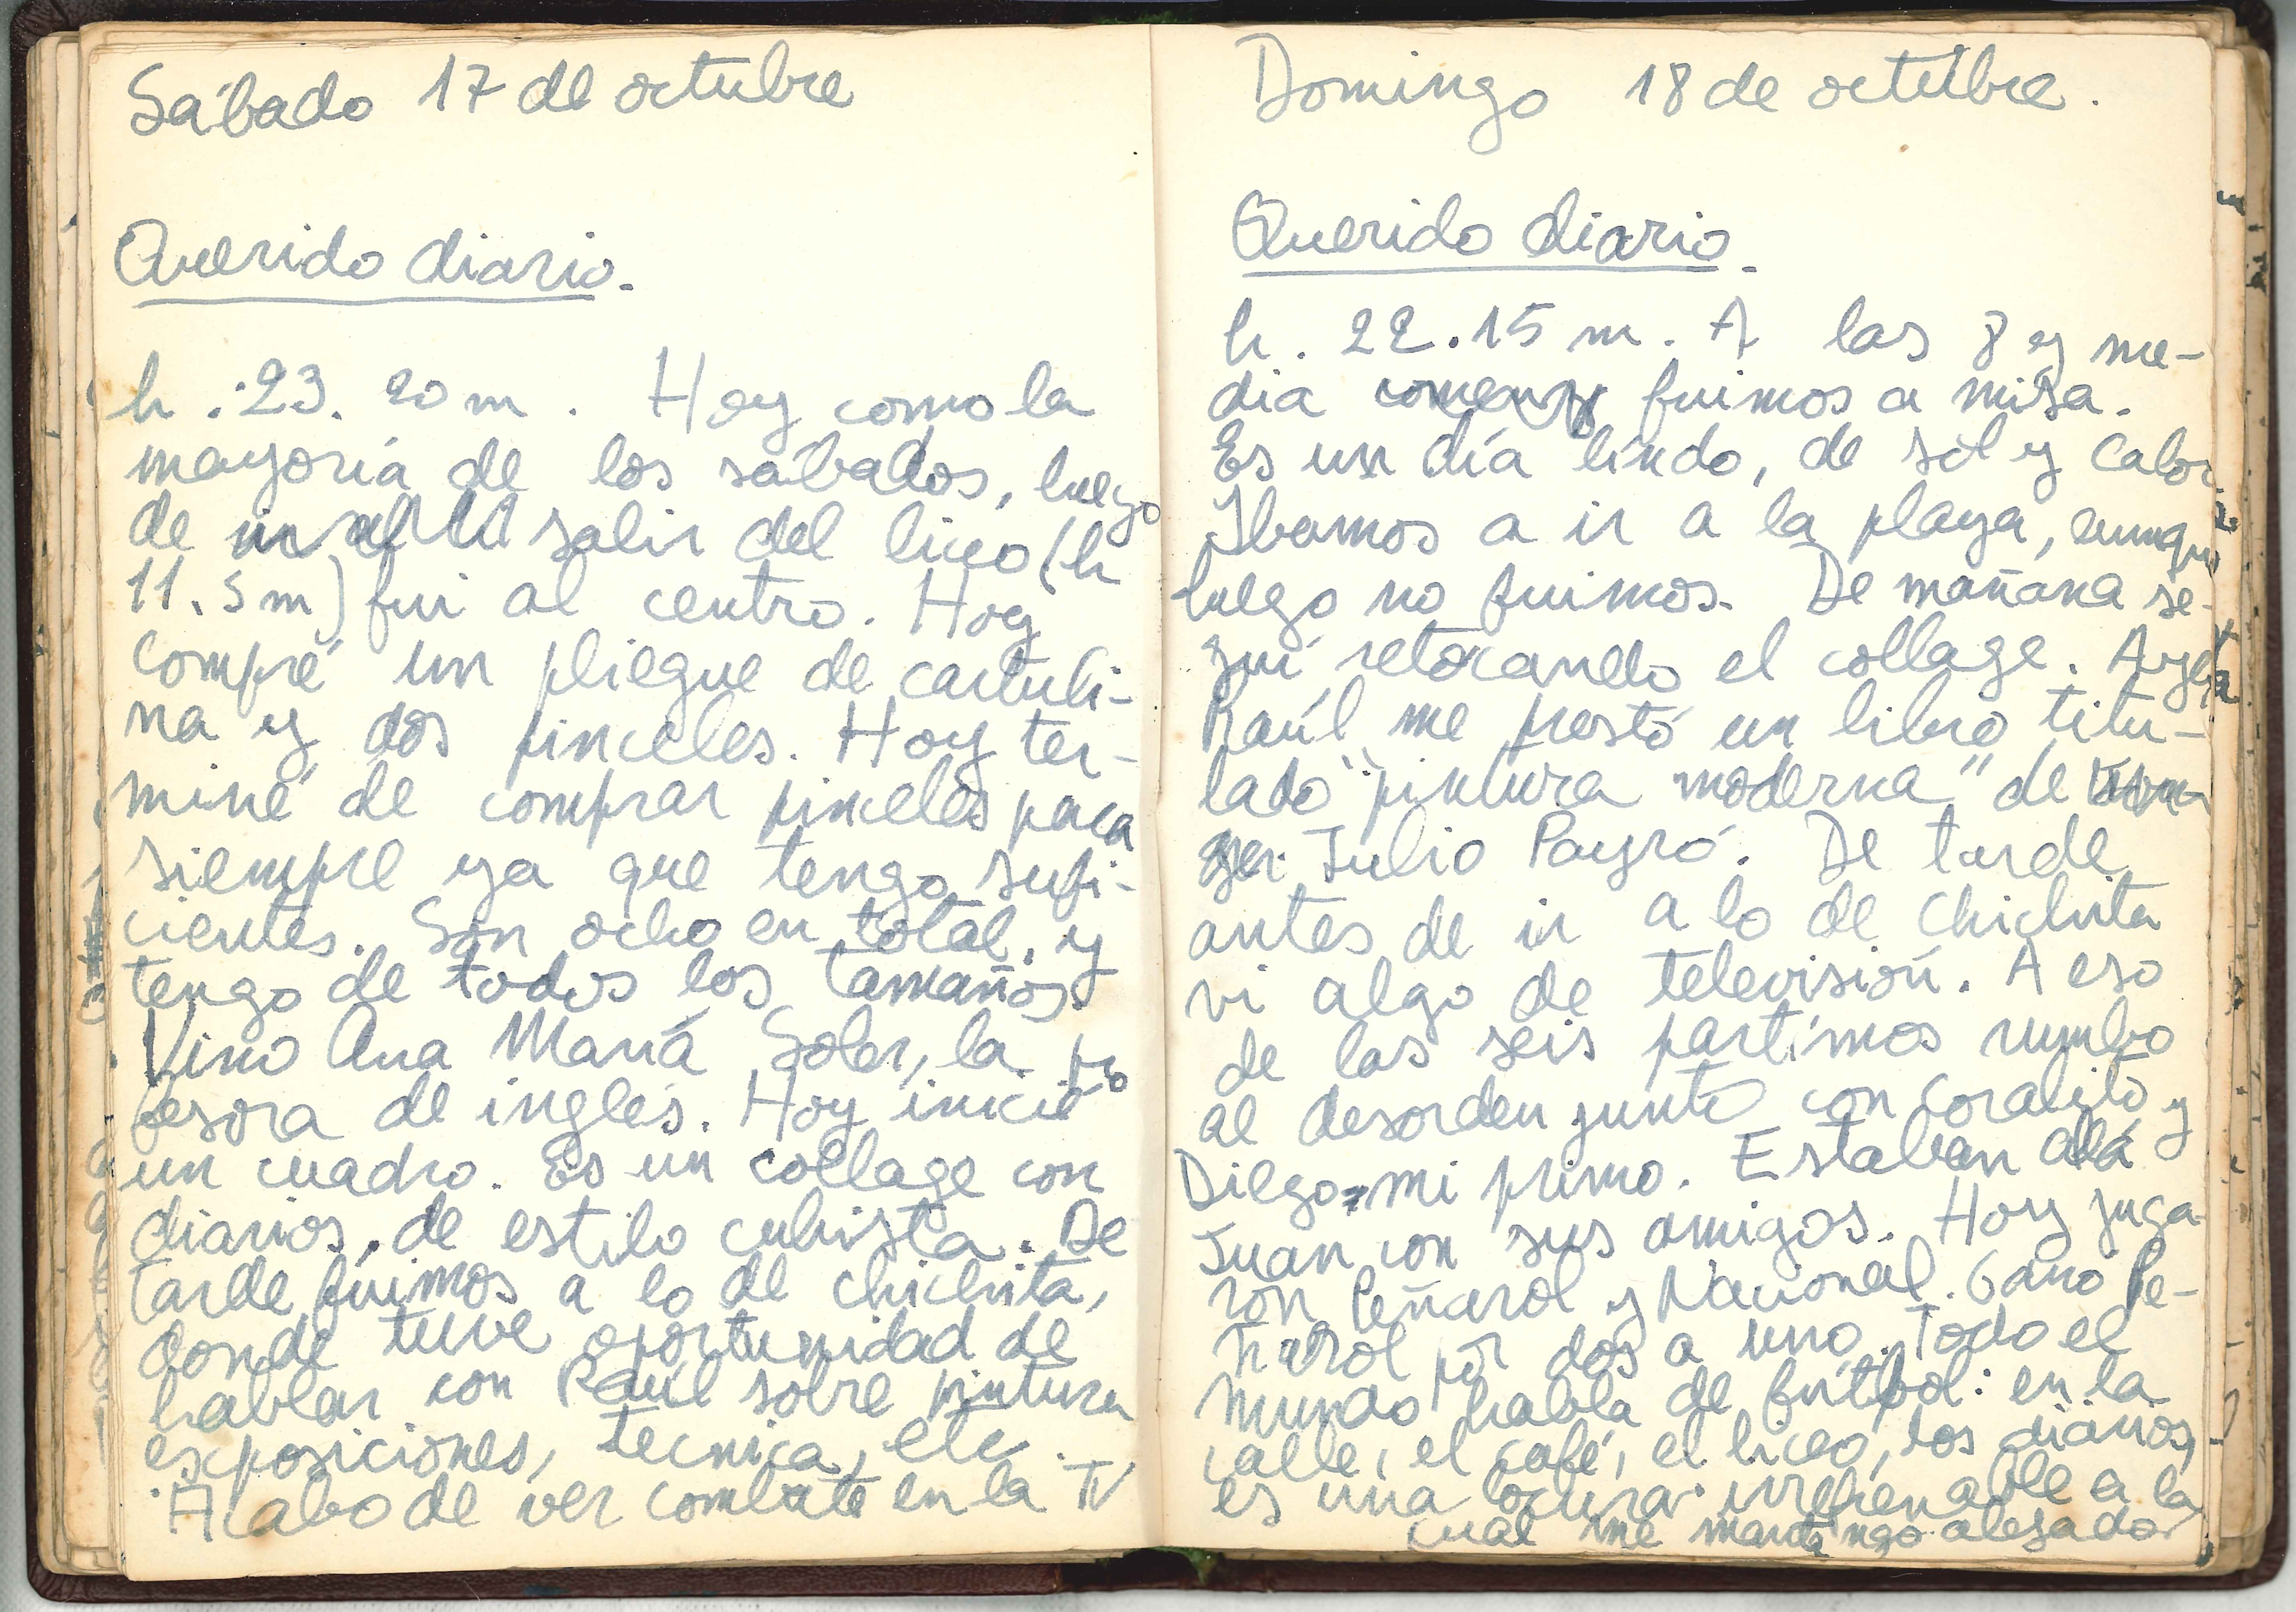 Sábado 17 de octubre
Querido diario.
h. 23. 20 m. Hoy como la
mayoría de los sábados, luego
de salir del liceo (h
11.5 m) fui al centro. Hoy
compré un pliegue de cartuli-
na y dos pinceles. Hoy ter-
miné de comprar pinceles para
siempre ya que tengo sufi-
cientes. Son ocho en total, y
tengo de todos los tamaños
Vino Ana María Soler, la pro
fesora de inglés. Hoy inicié
un cuadro. Es un collage con
diarios, de estilo cubista. De
tarde fuimos a lo de Chichita,
donde tuve oportunidad de
hablar con Raúl sobre pintura
exposiciones, tecnica, etc.
Acabo de ver combate en la TV
Domingo 18 de octubre.
Querido diario.
h. 22.15 m. A las 8 y me-
dia fuimos a misa.
Es un día lindo, de sol y calor.
Ibamos a ir a la playa, aunque
luego no fuimos. De mañana se-
guí retocando el collage. Ayer
Raúl me prestó un libro titu-
lado "pintura moderna" de
Julio Payró. De tarde
antes de ir a lo de Chichita
vi algo de televisión. A eso
de las seis partimos rumbo
al desorden junto con Coralito y
Diego, mi primo. Estaban allá
Juan con sus amigos. Hoy juga-
ron Peñarol y Nacional. Ganó Pe-
ñarol por dos a uno. Todo el
mundo habla de fútbol: en la
calle, el café, el liceo, los diarios,
es una locura irrefrenable a la
cual me mantengo alejado.